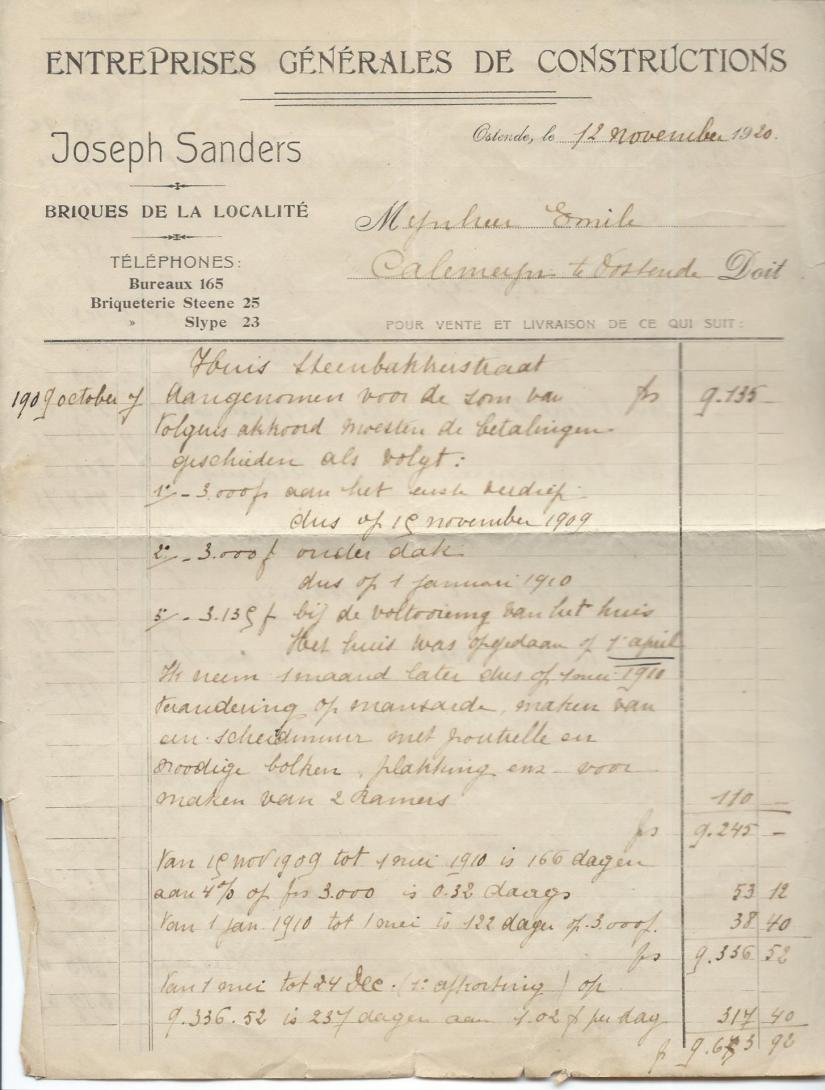 ENTREPRISES GÉNÉRALES DE CONSTRUCTIONS
Joseph Sanders
Ostende, le 12 november 1920.
BRIQUES DE LA LOCALITÉ
Mynheer Emile
TÉLÉPHONES:
Calemeyn te Oostende Doit
Bureaux 165
Briqueterie Steene 25
» Slype 23
POUR VENTE ET LIVRAISON DE CE QUI SUIT:
Huis Steenbakkerstraat
1909 october 7 Aangenomen voor de som van frs 9.135 -
Volgens akkoord moesten de betalingen
geschieden als volgt:
1°/ - 3.000 fs aan het eerste verdiep
dus op 15 november 1909
2°/ - 3.000 f onder dak
dus op 1 januari 1910
3/ - 3.135 f bij de voltooiing van het huis
Het huis was opgedaan op 1 april
Ik neem 1 maand later dus op 1 mei 1910
Verandering op mansarde, maken van
een scheidmuur met poutrelle en
noodige bolken, plakking enz voor
maken van 2 kamers 110 -
frs 9.245 -
Van 15 nov 1909 tot 1 mei 1910 is 166 dagen
aan 4% op frs 3.000 is 0.32 daags 53 12
Van 1 jan. 1910 tot 1 mei is 122 dagen op 3.000 f. 38 40
frs 9.336 52
Van 1 mei tot 24 Dec. (1° afkorting) op
9.336.52 is 237 dagen aan 1.02 f per dag 317 40
f 9.653 92